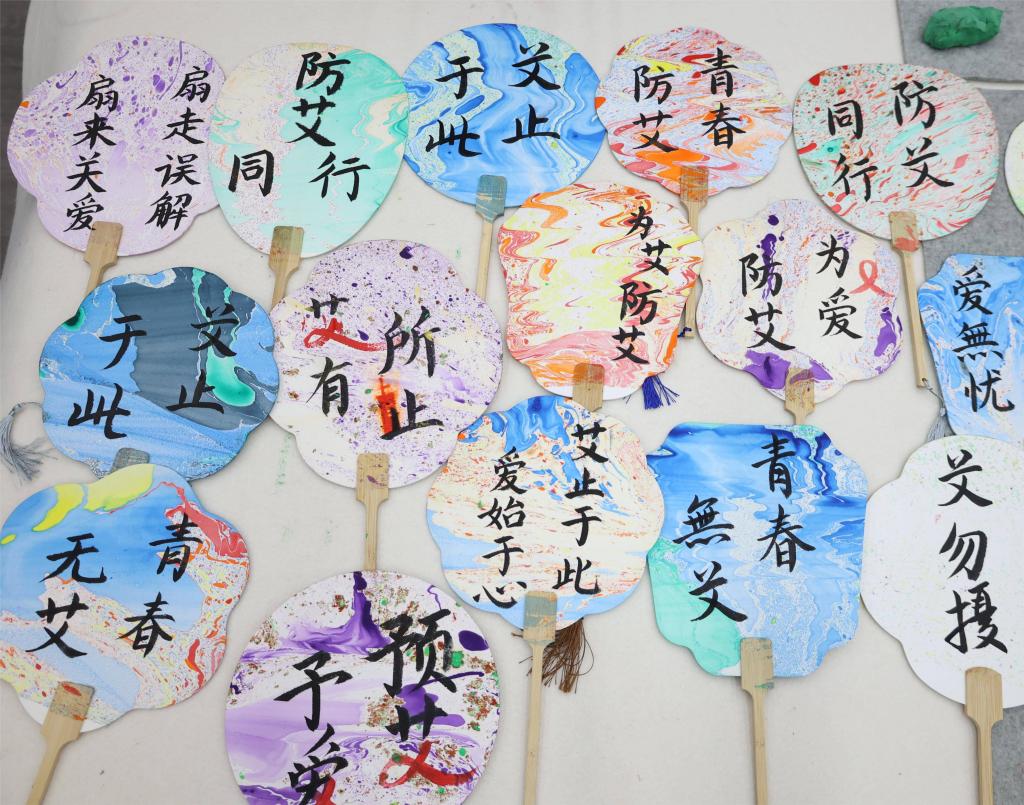 扇走误解
扇来关爱
防艾
同行
艾止
于此
青春
防艾
防艾
同行
艾止
于此
所止
艾有
为艾防艾
为爱
防艾
爱無忧
青春
无艾
预艾
予爱
艾止于此
爱始于心
青春
無艾
艾勿擾